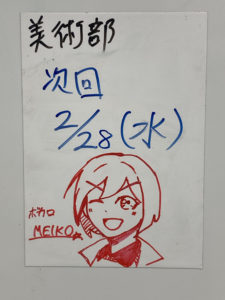 美術部
次回
2/28(水)
ボカロ
MEIKO